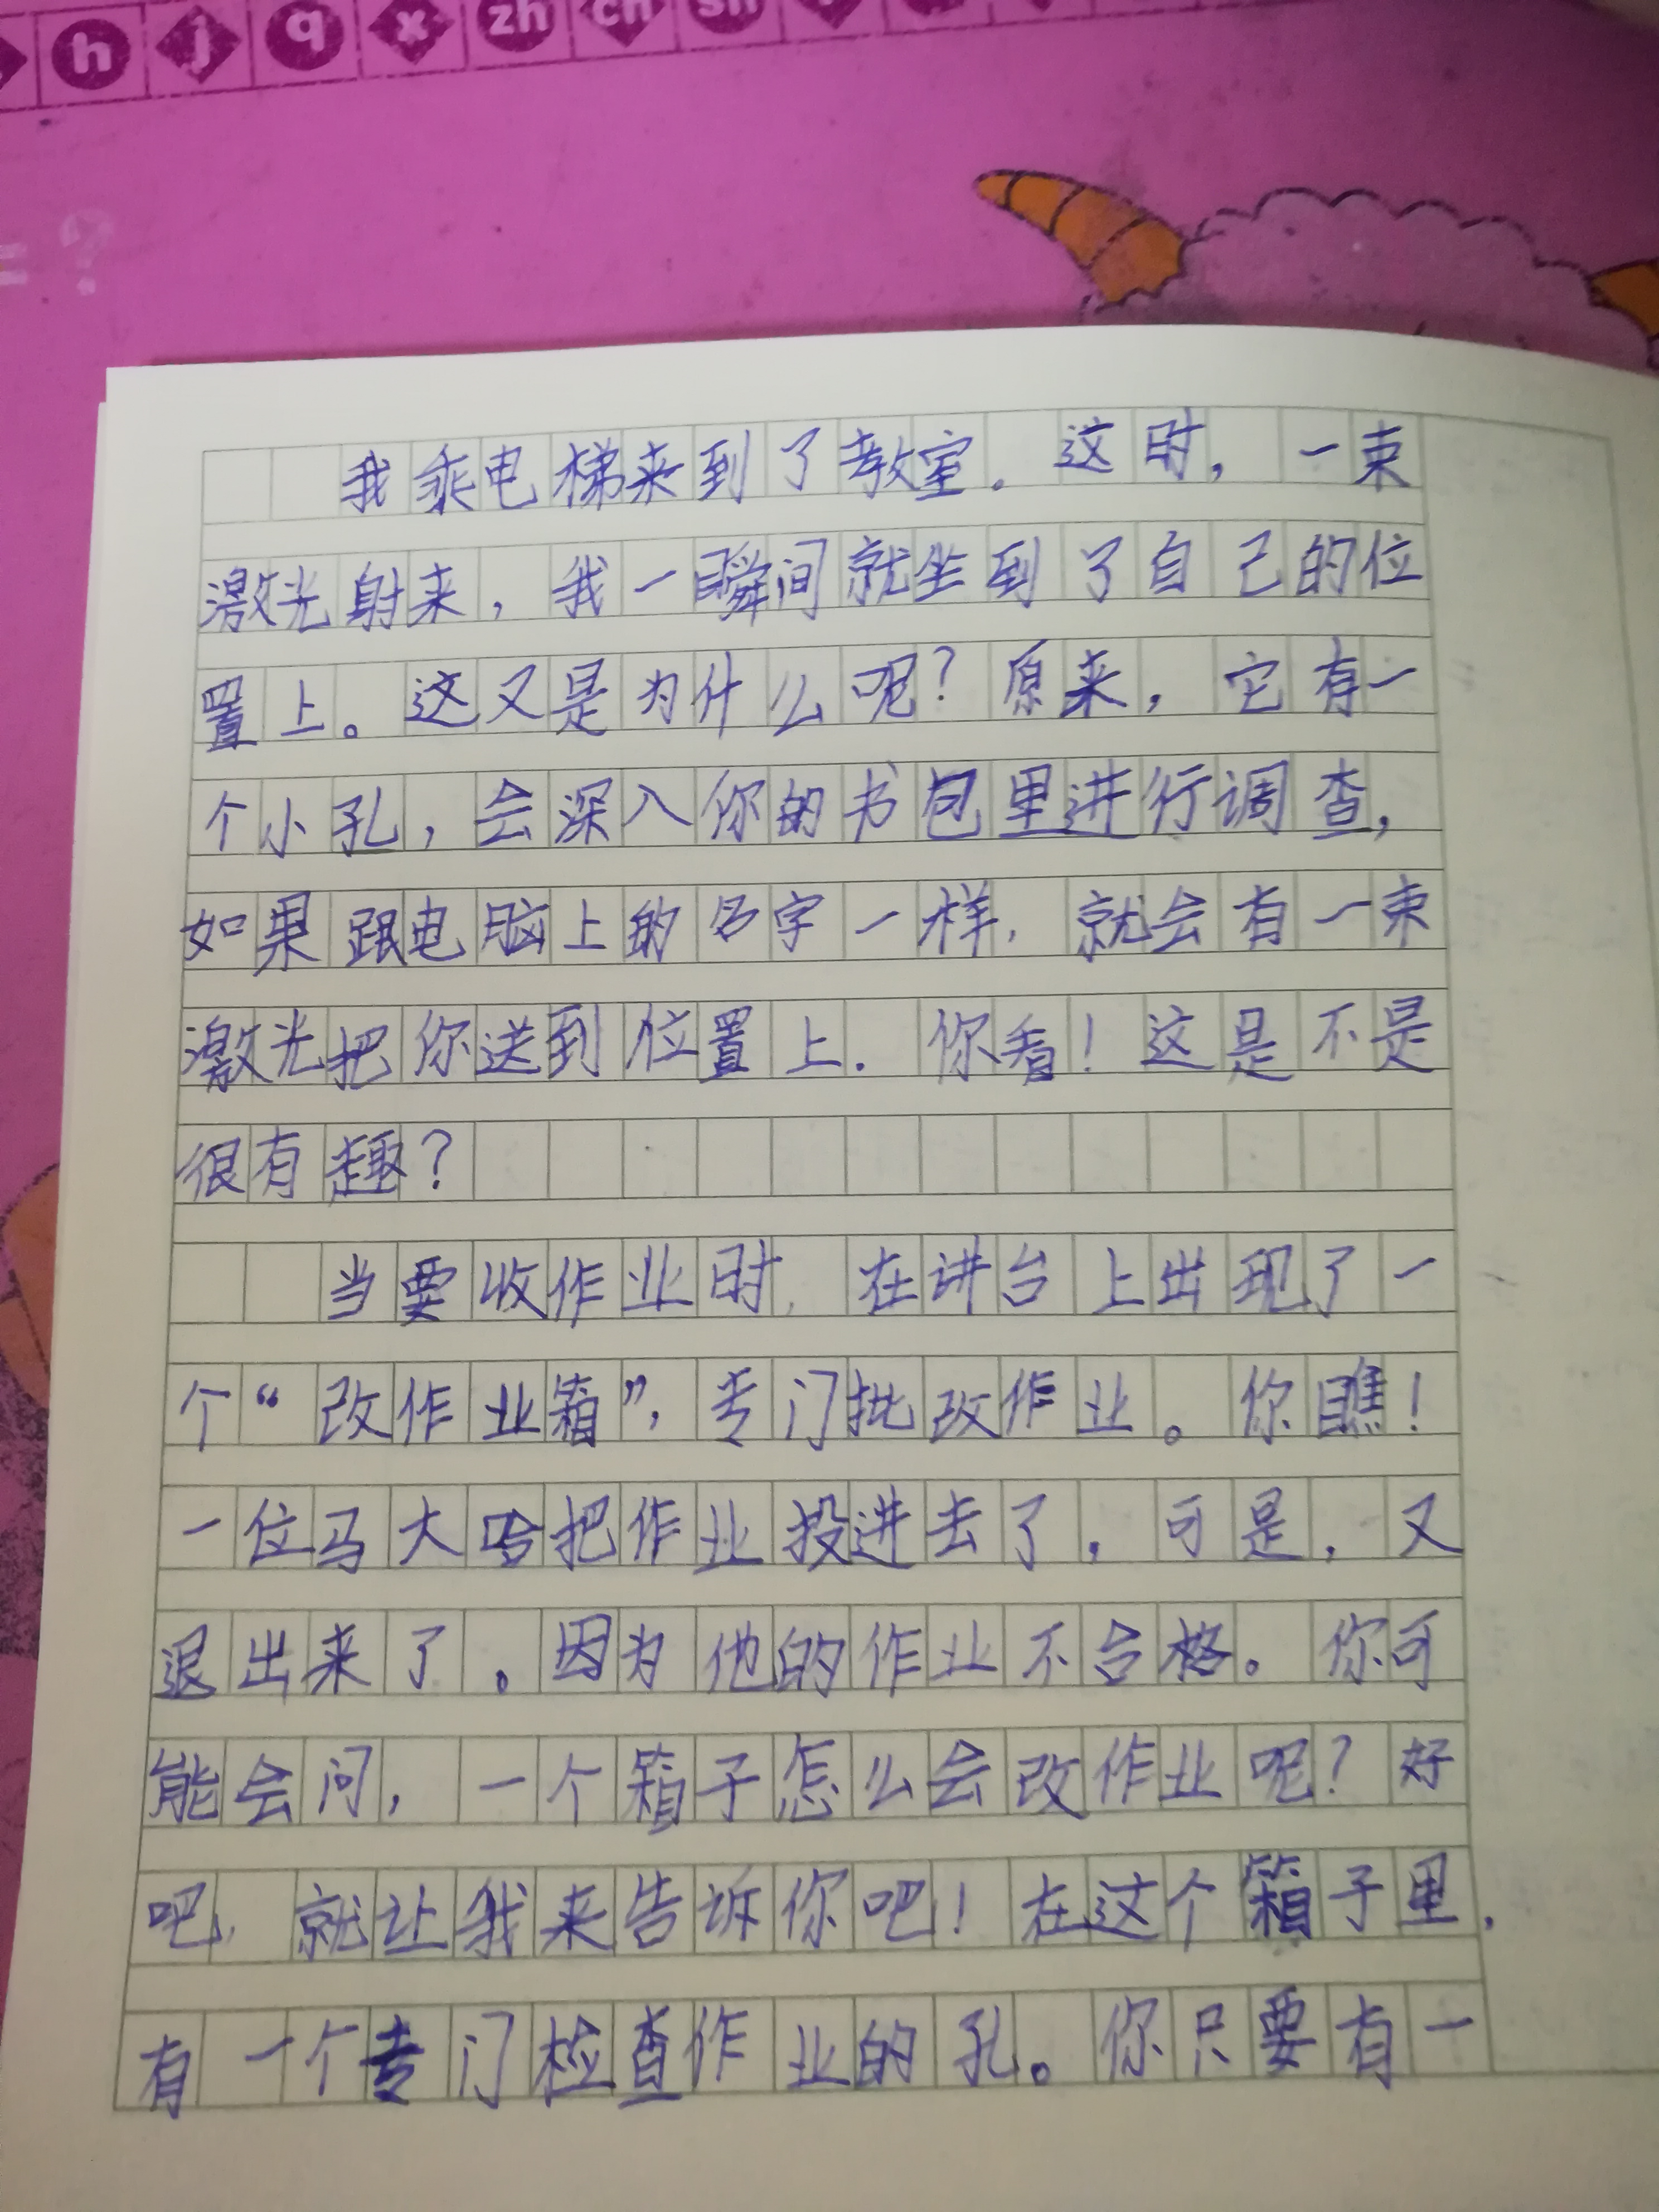 h j q x zh ch sh
= ?
我乘电梯来到了教室。这时，一束
激光射来，我一瞬间就坐到了自己的位
置上。这又是为什么呢？原来，它有一
个小孔，会深入你的书包里进行调查，
如果跟电脑上的名字一样，就会有一束
激光把你送到位置上。你看！这是不是
很有趣？
当要收作业时，在讲台上出现了一
个“改作业箱”，专门批改作业。你瞧！
一位马大哈把作业投进去了，可是，又
退出来了。因为他的作业不合格。你可
能会问，一个箱子怎么会改作业呢？好
吧，就让我来告诉你吧！在这个箱子里，
有一个专门检查作业的孔。你只要有一